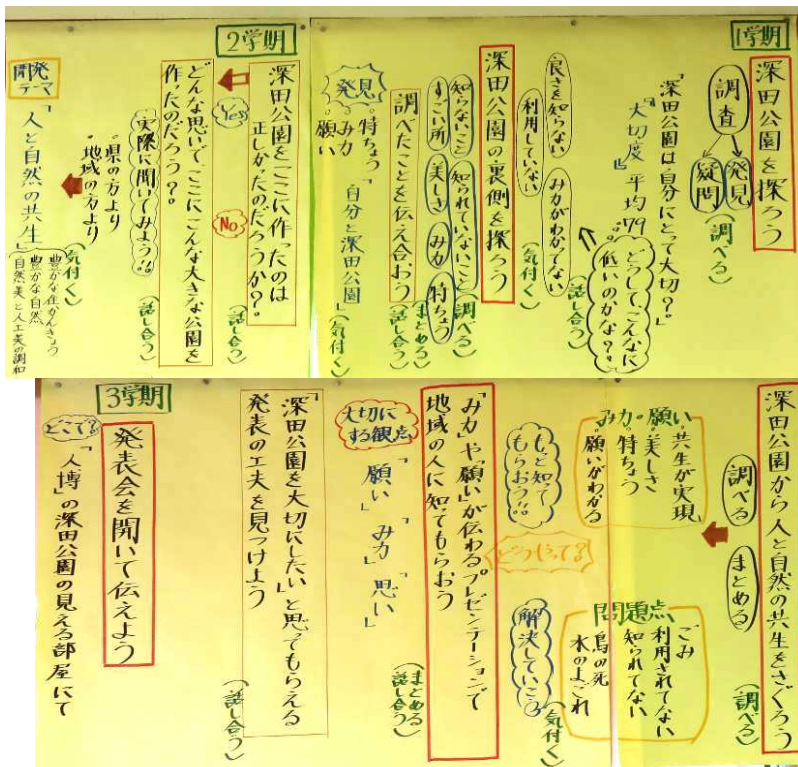 1学期
深田公園を探ろう
調査
発見
疑問
(調べる)
「深田公園は自分にとって大切?」
『大切度 平均79』
どうして、こんなに
低いのかな?
(話し合う)
良さを知らない
みカがわかってない
利用していない
(気付く)
深田公園の裏側を探ろう
知らないこと
知られていないこと
すごい所
美しさ
みカ
特ちょう
(調べる)
(まとめる)
調べたことを伝え合おう
(話し合う)
発見
特ちょう
みカ
願い
「自分と深田公園」
(気付く)
2学期
深田公園をここに作ったのは
正しかったのだろうか?。
(話し合う)
Yes
No
どんな思いで、ここにこんな大きな公園を
作ったのだろう?。
(話し合う)
実際に聞いてみよう!!
・県の方より
・地域の方より
(気付く)
開発
テーマ
「人と自然の共生」
豊かな住かんきょう
豊かな自然
自然美と人工美の調和
深田公園から人と自然の共生をさぐろう
(調べる)
調べる
まとめる
みカ・願い
共生が実現
・美しさ
特ちょう
願いがわかる
問題点
ごみ
利用されてない
知られてない
鳥の死
水のよごれ
(気付く)
もっと知って
もらおう!!
解決していこう
どうやって?
「みカ」や「願い」が伝わるプレゼンテーションで
地域の人に知ってもらおう
(まとめる)
(話し合う)
大切に
する観点
「願い」「みカ」「思い」
「深田公園を大切にしたい」と思ってもらえる
発表の工夫を見つけよう
(話し合う)
3学期
発表会を開いて伝えよう
どこで?
「人博」の深田公園の見える部屋にて